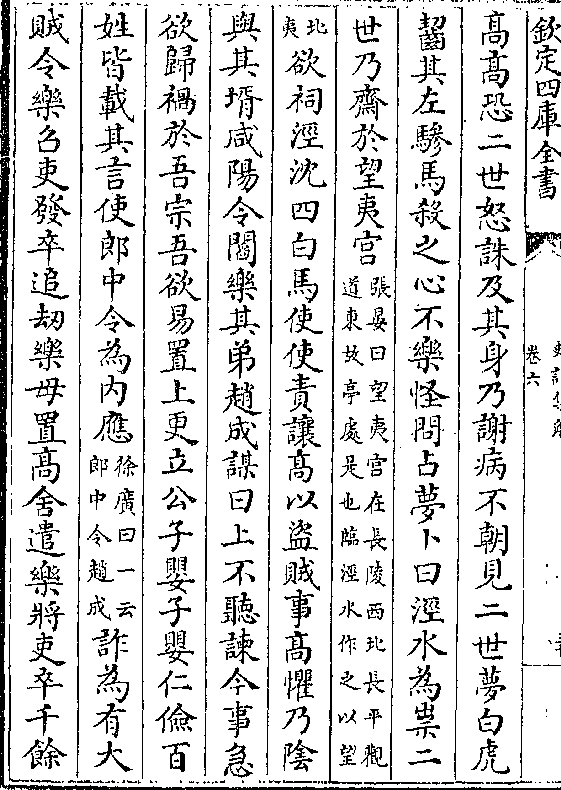 欽定四庫全書
卷六
高高恐二世怒誅及其身乃謝病不朝見二世夢白虎
齧其左驂馬殺之心不樂怪問占夢卜曰涇水為祟二
世乃齋於望夷宮張晏曰望夷宮在長陵西北長平觀道東故亭處是也臨涇水作之以望
北夷欲祠涇沈四白馬使使責讓高以盜賊事高懼乃陰
與其壻咸陽令閻樂其弟趙成謀曰上不聽諫今事急
欲歸禍於吾宗吾欲易置上更立公子嬰子嬰仁儉百
姓皆載其言使郎中令為内應徐廣曰一云郎中令趙成詐為有大
賊令樂召吏發卒追刼樂母置高舍遣樂將吏卒千餘